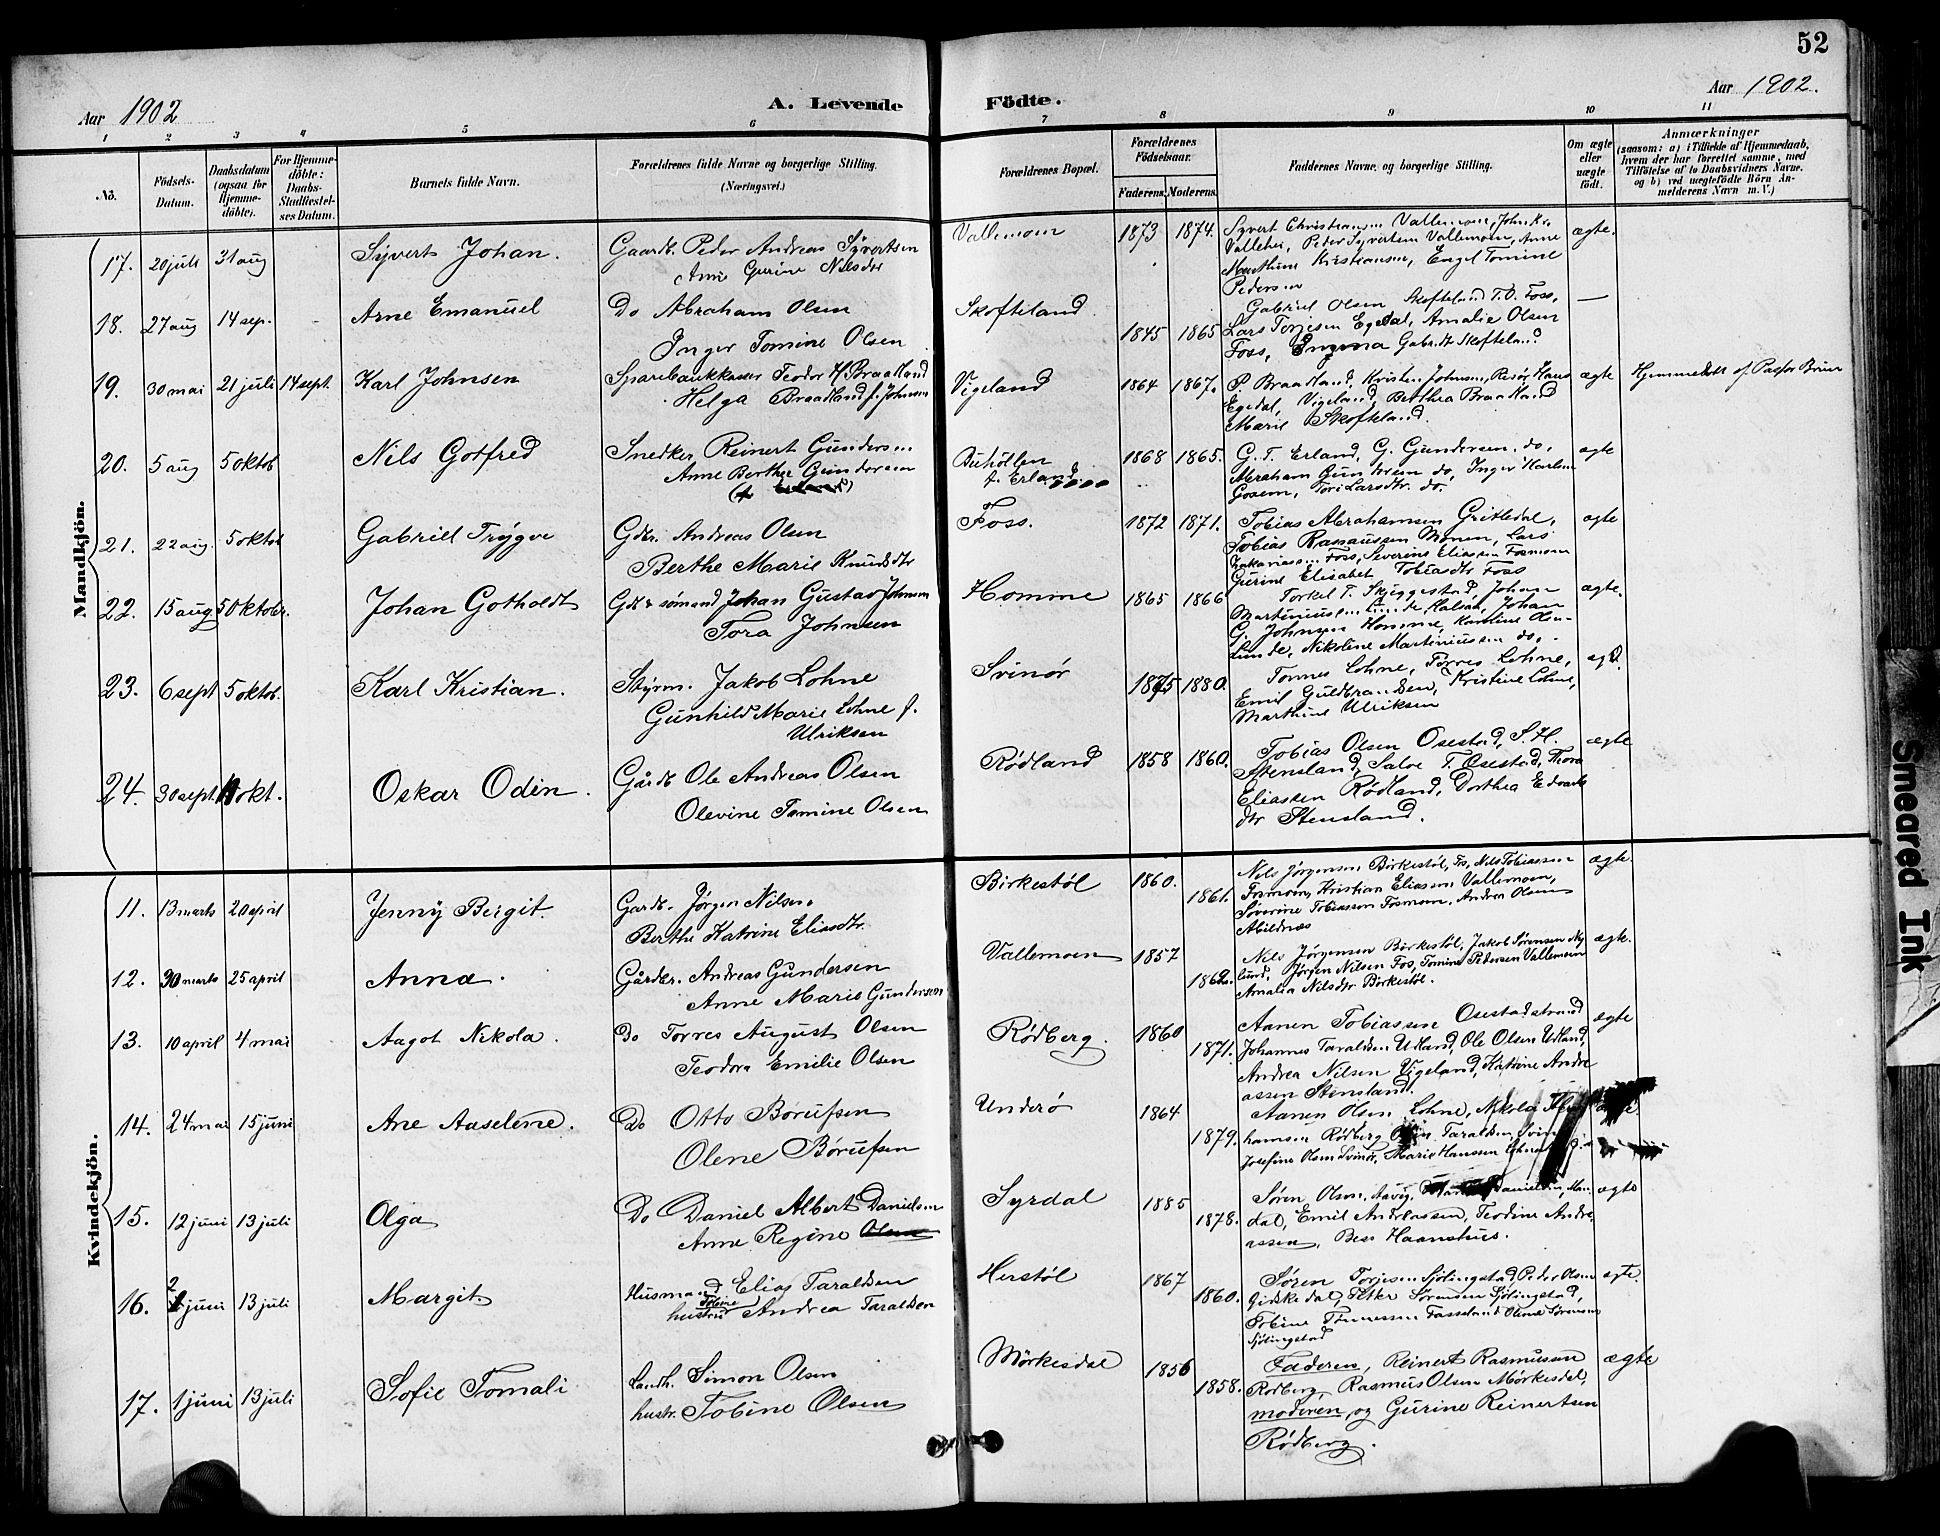 52
Aar 1902
A. Levende Födte.
Aar 1902.
1 2 3 4 5 6 7 8 9 10 11
No.
Födsels-Datum.
Daabsdatum (ogsaa for Hjemmedöbte).
For Hjemmedöbte: Daabs-Stadfæstelses Datum.
Barnets fulde Navn.
Forældrenes fulde Navne og borgerlige Stilling.
(Næringsvei.)
Forældrenes Bopæl.
Forældrenes Födselsaar.
Faderens. Moderens.
Faddernes Navne og borgerlige Stilling.
Om ægte eller uægte födt.
Anmærkninger
(saasom: a) i Tilfælde af Hjemmedaab,
hvem der har forrettet samme, med
Tilföielse af to Daabsvidners Navne.
og b) ved uægtefödte Börn An-
melderens Navn m. V.)
Mandkjön.
17. 20 juli 31 aug Syvert Johan. Gaardb. Peder Andreas Syvertsen
Anne Gurine Nilsdtr
Vallemoen 1873 1874. Syvert Christiansen Vallemoen, John Kr.
Vallehei, Peder Syvertsen Vallemoen, Anne
Marthine Kristiansen, Engel Tomine
Pedersen
ægte.
18. 27 aug 14 sep. Arne Emanuel Do Abraham Olsen
Inger Tomine Olsen
Skofteland 1845 1865 Gabriel Olsen Skofteland T. O. Foss,
Lars Torjesen Egedal, Amalie Olsen
Foss, Emma Gabr.dtr Skofteland
—
19. 30 mai 21 juli 14 sept. Karl Johnsen Sparebankkasser Teodor H Braadland
Helga Braadland f. Johnsen
Vigeland 1864 1867. P. Braadland, Kristen Johnsen, Risør, Hans
Egedal, Vigeland, Berthea Braadland
Marie Skofteland
ægte Hjemmedøbt af Pastor Brun
20. 5 aug 5 oktob Nils Gotfred Snedker Reinert Gundersen
Anne Berthe Gundersen
Buhöllen
f. Erland
1868 1865. G. T. Erland, G. Gundersen do,
Abraham Gundersen do, Inger Karlsen
Gosem, Tori Larsdtr. do.
ægte
21. 22 aug. 5 oktob Gabriell Trygve Gdbr. Andreas Olsen
Berthe Marie Knudsdtr
Foss. 1872 1871. Tobias Abrahamsen Gritledal,
Tobias Rasmussen Monen, Lars
Zakariassen Foss, Severine Eliassen Fosmoen
Gurine Elisabet Tobiasdtr Foss
ægte
22. 15 aug 5 oktobr. Johan Gotholdt Gdbr sømand Johan Gustav Johnsen
Tora Johnsen
Homme 1865 1866 Torkel T. Skjeggestad, Johan
Johan
G. Johnsen Homme, Karoline Olsen
Lunde, Nikoline Martiniussen do.
ægte.
23. 6 sept 5 oktob. Karl Kristian. Styrm. Jakob Lohne
Gunhild Marie Lohne f.
Ulriksen
Svinør 1875 1880. Tonnes Lohne, Torres Lohne,
Emil Guldbrandsen, Kristine Lohne,
Marthine Ulriksen
24. 30 sept. okt. Oskar Odin. Gårdb Ole Andreas Olsen
Olevine Tomine Olsen
Rødland 1858 1860. Tobias Olsen Osestad, S. H.
Stensland, Salve T. Osestad, Thora
Eliassen Rødland, Dorthea Edvards
dtr Stensland.
ægte
Kvindekjön.
11. 13 marts 20 april Jenny Bergit. Gardb. Jörgen Nilsen
Berthe Katrine Eliasdtr.
Birkestöl 1860. 1861. Nils Jörgensen Birkestöl, Fos, Nils Tobiassen
Fosmoen, Kristian Eliassen Vallemoen,
Severine Tobiassen Fosmoen, Andrea Olsen
Abildnæs
ægte
12. 30 marts 25 april Anna. Gårdbr. Andreas Gundersen
Anne Marie Gundersen
Vallemoen 1857 1862. Nils Jörgensen Birkestöl, Jakob Sörensen Ny
lund, Jörgen Nilsen Fos, Tomine Pedersen Vallemoen
Amalia Nilsdtr Birkestöl.
ægte.
13. 10 april 4 mai Aagot Nikola. Do Torres August Olsen
Teodora Emilie Olsen
Rödberg. 1860 1871. Aanen Tobiassen Osestadstrand
Johannes Taraldsen Udland, Ole Olsen Udland,
Andrea Nilsen Vigeland, Katrine Andre
assen Stensland.
ægte
14. 24 mai 15 juni Ane Aaselene. Do Otto Börufsen
Olene Börufsen
Underö 1864 1879. Aanen Olsen Lohne, Nikolai
hamsen Rödberg Taraldsen
Josefine Olsen Svinör, Marie Hanssen Lohne
ægte
15. 12 juni 13 juli Olga Do Daniel Albert Danielsen
Anne Regine Olsen
Syrdal 1885 1878. Søren Olsen, Danielsen, Man-
dal, Emil Andreassen, Teodine Andre
assen, Haanshus.
ægte
16. 2 juni 13 juli Margit. Husmand Elias Taraldsen
hustru Tobine Andrea Taraldsen
Herstöl 1867 1860. Sören Torjesen Sjölingstad, Peder Olsen
Gidskedal, Sørensen Sjölingstad,
Tobine Tönnessen Fasseland Olene Sørensen
Sjölingstad
ægte.
17. 1 juni 13 juli Sofie Tomali Landh. Simon Olsen
hustr. Tobine Olsen
Mörkesdal 1856 1858. Faderen, Reinert Rasmussen
Rødberg, Rasmus Olsen Mörkesdal,
moderen, og Gurine Reinertsen
Rödberg.
ægte
Smeared Ink